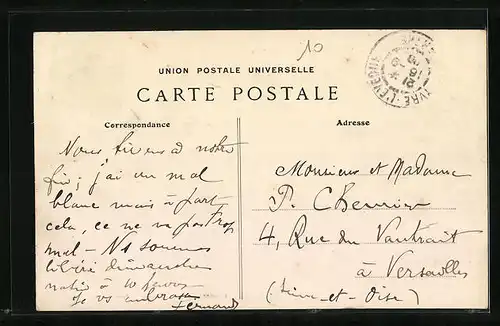 10
UNION POSTALE UNIVERSELLE
CARTE POSTALE
Correspondance
Adresse
YVRÉ-L'ÉVÊQUE
Nous tirons à notre
fin; j'ai un mal
blanc mais à part
cela, ce ne va pas trop
mal - Ns sommes
libéré dimanche
matin à 10
Je vs embrasse
Fernand
Monsieur et Madame
P. Chemin
4, Rue du
à Versailles
(Seine-et-Oise)